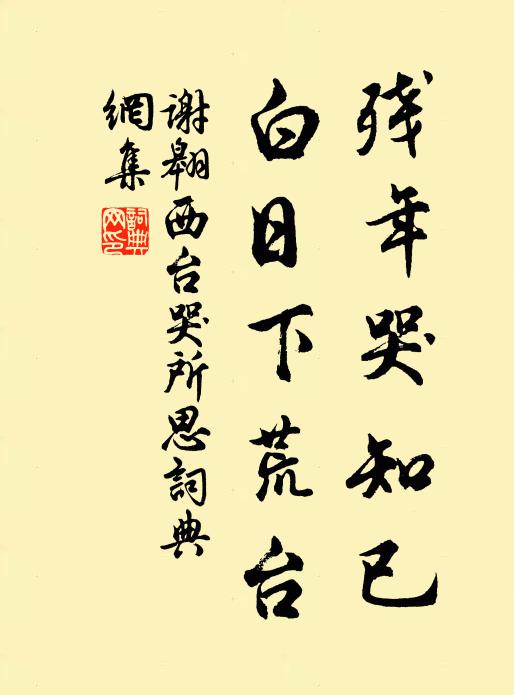 残年哭知己
白日下荒台
谢翱西台哭所思詞典
網集
詞典网印